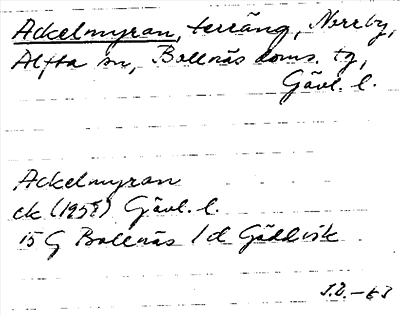 Ackelmyran, terräng, Norrby,
Alfta sn, Bollnäs doms. tg,
Gävl. l.
Ackelmyran
ek (1958) Gävl. l.
15 G Bollnäs 1d Gäddvik
S.D. -63